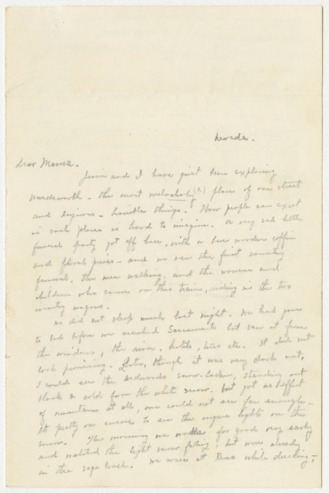 Nevada.
Dear Mamma.
Jennie and I have just been exploring
Wadsworth - the most melancholy (?) place of one street
and engines - horrider things. How people can exist
in such places is hard to imagine. A very sad little
funeral party got off here, with a pine wooden coffin
and floral pieces - and we saw the first country
funeral, the men walking, and the women and
children who came on this train, riding in the two
country wagons.
We did not sleep much last night. We had gone
to bed before we reached Sacramento but saw it from
the windows, the river, hotels, lights etc. It did not
look promising. Later, though it was very dark out,
I could see the snow, standing out
black & cold from the white snow. but got no effect
of mountains at all, we could not see far enough.
At pretty our curves to see the engine lights on the
snow. This morning we woke for good very early
and watched the light snow falling; but were already
in the sage brush. We were at Reno while dressing -